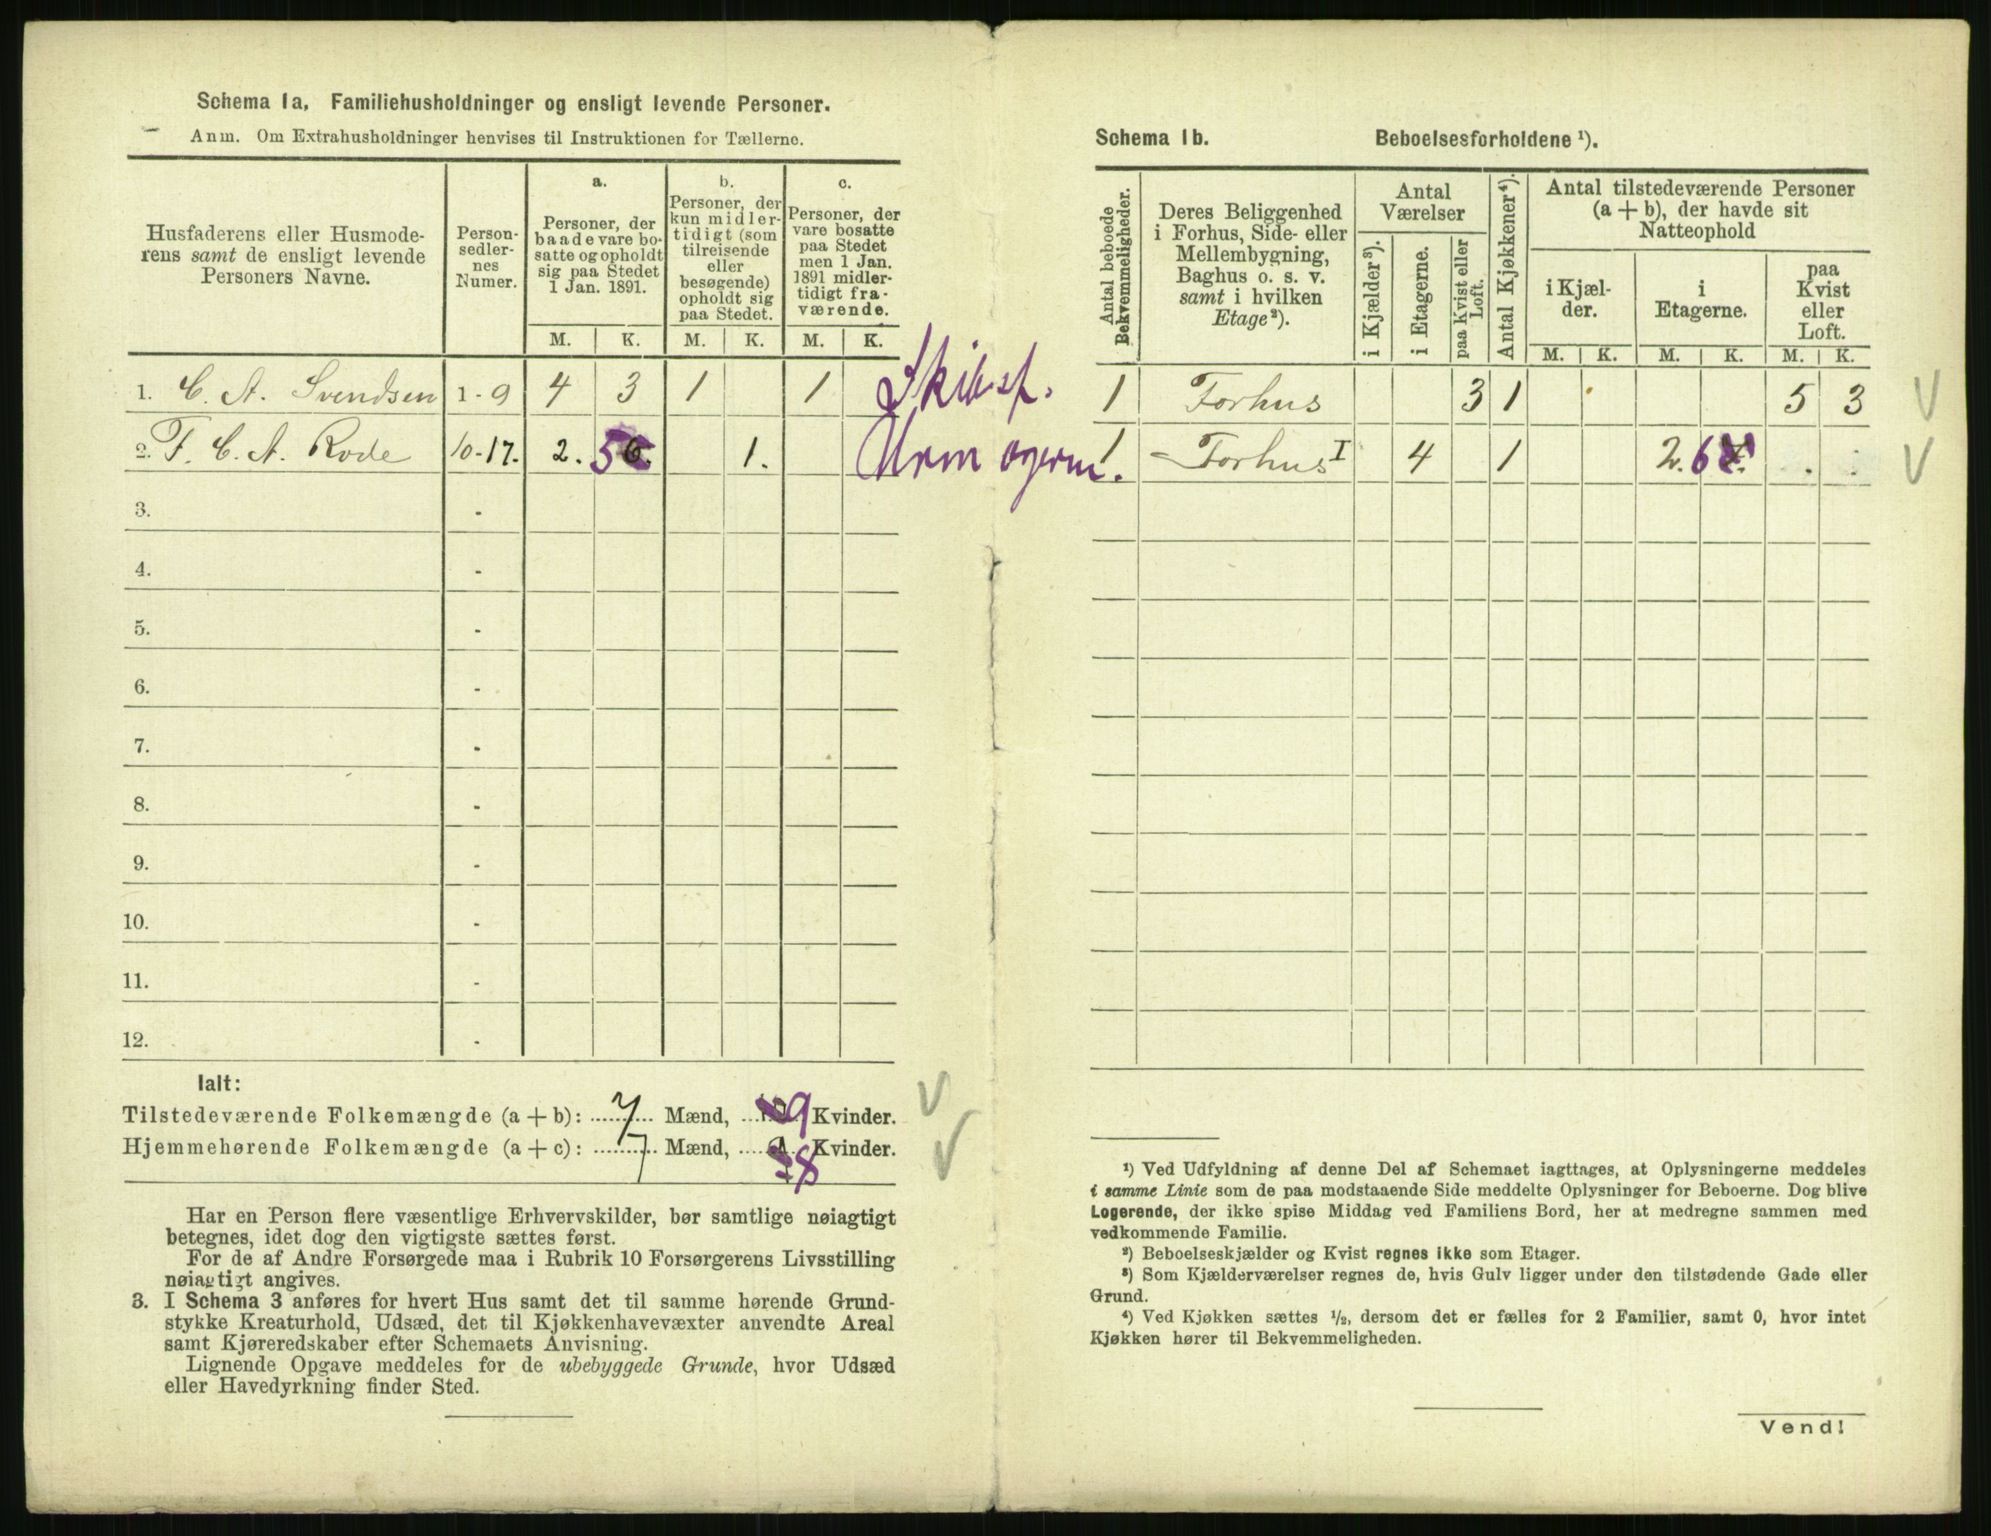 Schema 1a. Familiehusholdninger og ensligt levende Personer.
Anm. Om Extrahusholdninger henvises til Instruktionen for Tællerne.
Husfaderens eller Husmode-
rens samt de ensligt levende
Personers Navne.
Person-
sedler-
nes
Numer.
a.
Personer, der
baade vare bo-
satte og opholdt
sig paa Stedet
1 Jan. 1891.
b.
Personer, der
kun midler-
tidigt (som
tilreisende
eller
besøgende)
opholdt sig
paa Stedet.
c.
Personer, der
vare bosatte
paa Stedet
men 1 Jan.
1891 midler-
tidigt fra-
værende.
M. K. M. K. M. K.
1. C. A. Svendsen 1-9 4 3 1 1 Skibsf.
2. F. C. A. Rode 10-17. 2. 5 1.
3. -
4. -
5. -
6. -
7. -
8. -
9. -
10. -
11. -
12. -
Ialt:
Tilstedeværende Folkemængde (a + b): 7 Mænd, 9 Kvinder.
Hjemmehørende Folkemængde (a + c): 7 Mænd, 8 Kvinder.
Har en Person flere væsentlige Erhvervskilder, bør samtlige nøiagtigt
betegnes, idet dog den vigtigste sættes først.
For de af Andre Forsørgede maa i Rubrik 10 Forsørgerens Livsstilling
nøiagtigt angives.
3. I Schema 3 anføres for hvert Hus samt det til samme hørende Grund-
stykke Kreaturhold, Udsæd, det til Kjøkkenhavevæxter anvendte Areal
samt Kjøreredskaber efter Schemaets Anvisning.
Lignende Opgave meddeles for de ubebyggede Grunde, hvor Udsæd
eller Havedyrkning finder Sted.
Schema 1b. Beboelsesforholdene ¹).
Antal beboede
Bekvemmeligheder.
Deres Beliggenhed
i Forhus, Side- eller
Mellembygning,
Baghus o. s. v.
samt i hvilken
Etage²).
Antal
Værelser
i Kjælder³).
i Etagerne.
paa Kvist eller
Loft.
Antal Kjøkkener⁴).
Antal tilstedeværende Personer
(a + b), der havde sit
Natteophold
i Kjæl-
der.
i
Etagerne.
paa
Kvist
eller
Loft.
M. K. M. K. M. K.
1 Forhus 3 1 5 3
1 Forhus I 4 1 2. 6
¹) Ved Udfyldning af denne Del af Schemaet iagttages, at Oplysningerne meddeles
i samme Linie som de paa modstaaende Side meddelte Oplysninger for Beboerne. Dog blive
Logerende, der ikke spise Middag ved Familiens Bord, her at medregne sammen med
vedkommende Familie.
²) Beboelseskjælder og Kvist regnes ikke som Etager.
³) Som Kjælderværelser regnes de, hvis Gulv ligger under den tilstødende Gade eller
Grund.
⁴) Ved Kjøkken sættes ½, dersom det er fælles for 2 Familier, samt 0, hvor intet
Kjøkken hører til Bekvemmeligheden.
Vend!